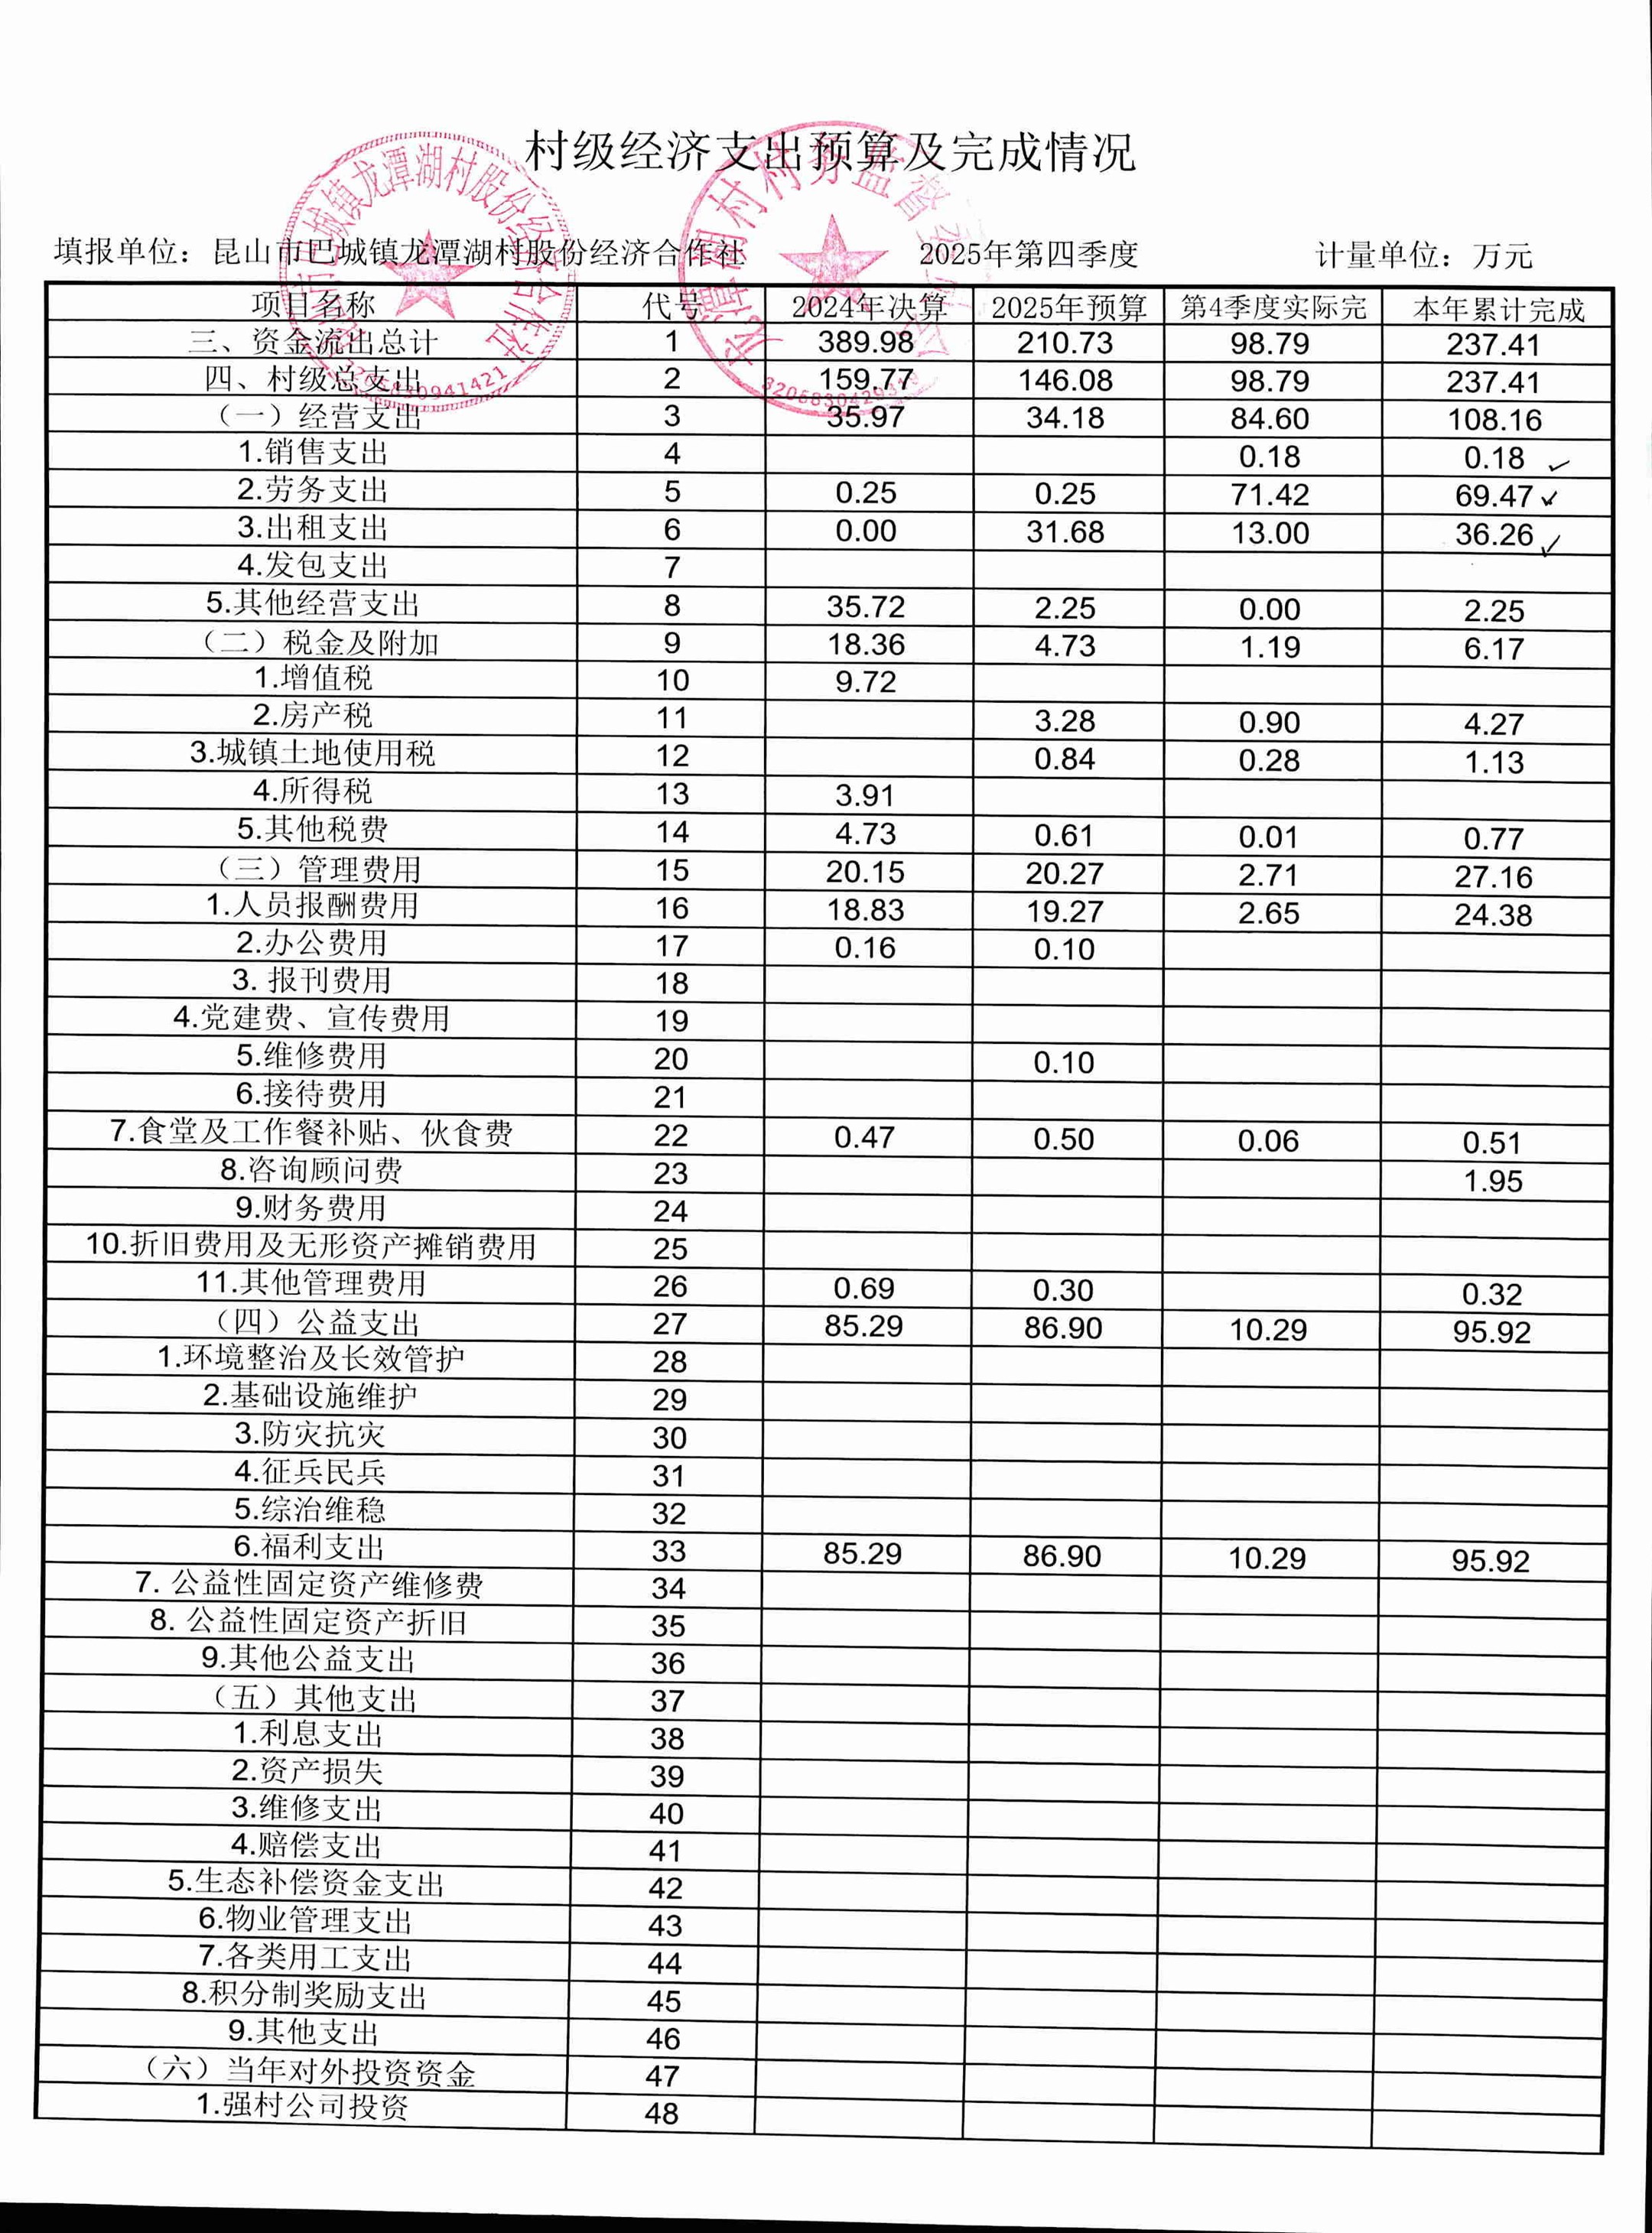 村级经济支出预算及完成情况
填报单位：昆山市巴城镇龙潭湖村股份经济合作社 2025年第四季度 计量单位：万元
项目名称 代号 2024年决算 2025年预算 第4季度实际完 本年累计完成
三、资金流出总计 1 389.98 210.73 98.79 237.41
四、村级总支出 2 159.77 146.08 98.79 237.41
（一）经营支出 3 35.97 34.18 84.60 108.16
1.销售支出 4 0.18 0.18
2.劳务支出 5 0.25 0.25 71.42 69.47
3.出租支出 6 0.00 31.68 13.00 36.26
4.发包支出 7
5.其他经营支出 8 35.72 2.25 0.00 2.25
（二）税金及附加 9 18.36 4.73 1.19 6.17
1.增值税 10 9.72
2.房产税 11 3.28 0.90 4.27
3.城镇土地使用税 12 0.84 0.28 1.13
4.所得税 13 3.91
5.其他税费 14 4.73 0.61 0.01 0.77
（三）管理费用 15 20.15 20.27 2.71 27.16
1.人员报酬费用 16 18.83 19.27 2.65 24.38
2.办公费用 17 0.16 0.10
3. 报刊费用 18
4.党建费、宣传费用 19
5.维修费用 20 0.10
6.接待费用 21
7.食堂及工作餐补贴、伙食费 22 0.47 0.50 0.06 0.51
8.咨询顾问费 23 1.95
9.财务费用 24
10.折旧费用及无形资产摊销费用 25
11.其他管理费用 26 0.69 0.30 0.32
（四）公益支出 27 85.29 86.90 10.29 95.92
1.环境整治及长效管护 28
2.基础设施维护 29
3.防灾抗灾 30
4.征兵民兵 31
5.综治维稳 32
6.福利支出 33 85.29 86.90 10.29 95.92
7. 公益性固定资产维修费 34
8. 公益性固定资产折旧 35
9.其他公益支出 36
（五）其他支出 37
1.利息支出 38
2.资产损失 39
3.维修支出 40
4.赔偿支出 41
5.生态补偿资金支出 42
6.物业管理支出 43
7.各类用工支出 44
8.积分制奖励支出 45
9.其他支出 46
（六）当年对外投资资金 47
1.强村公司投资 48
巴城镇龙潭湖村股份经济合作社
3205830941421
龙潭湖村村务监督